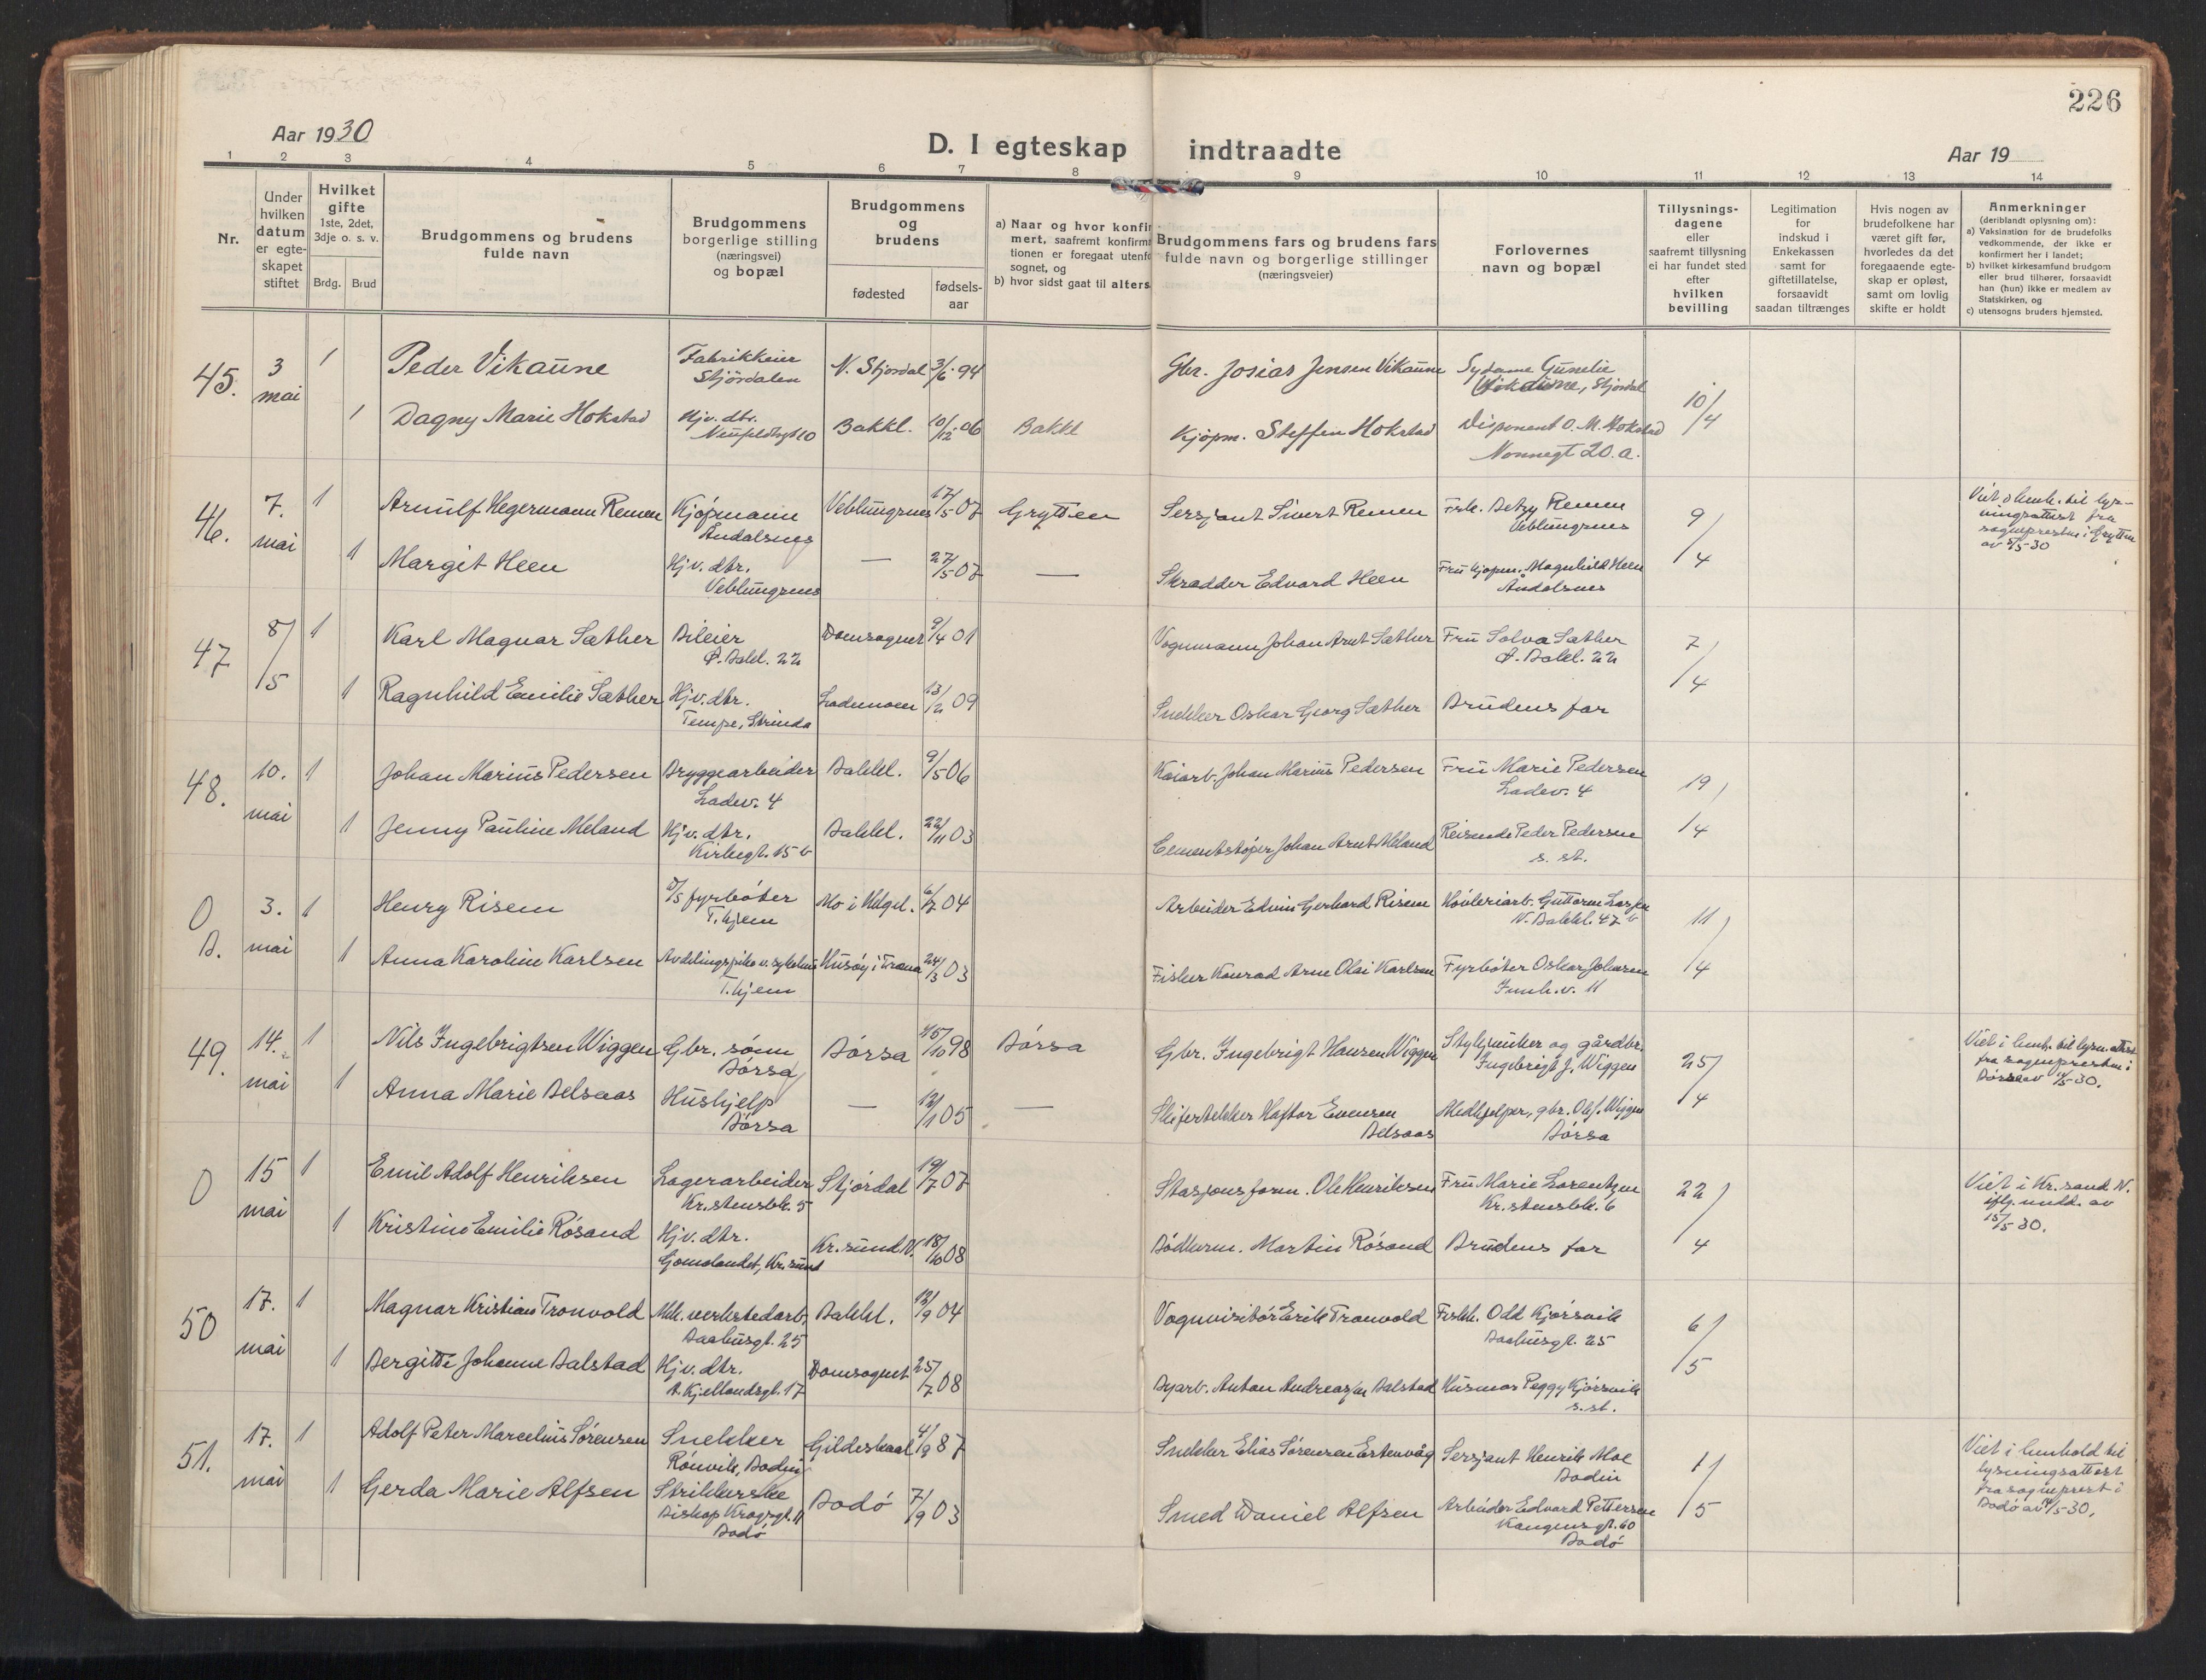 226
Aar 1930
D. I egteskap indtraadte
Aar 19
1 2 3 4 5 6 7 8 9 10 11 12 13 14
Nr.
Under hvilken datum er egte-skapet stiftet
Hvilket gifte 1ste, 2det, 3dje o. s. v.
Brdg. Brud
Brudgommens og brudens fulde navn
Brudgommens borgerlige stilling (næringsvei) og bopæl
Brudgommens og brudens
fødested
fødsels-aar
a) Naar og hvor konfir
mert, saafremt konfirm
tionen er foregaat utenfo
sognet, og
b) hvor sidst gaat til alters
Brudgommens fars og brudens fars
fulde navn og borgerlige stillinger
(næringsveier)
Forlovernes
navn og bopæl
Tillysnings-
dagene
eller
saafremt tillysning
ei har fundet sted
efter
hvilken
bevilling
Legitimation
for
indskud i
Enkekassen
samt for
giftetillatelse,
forsaavidt
saadan tiltrænges
Hvis nogen av
brudefolkene har
været gift før,
hvorledes da det
foregaaende egte-
skap er opløst,
samt om lovlig
skifte er holdt
Anmerkninger
(deriblandt oplysning om):
a) Vaksination for de brudefolks
vedkommende, der ikke er
konfirmert her i landet;
b) hvilket kirkesamfund brudgom
eller brud tilhører, forsaavidt
han (hun) ikke er medlem av
Statskirken, og
c) utensogns bruders hjemsted.
45. 3 mai 1 Peder Vikaune Fabrikkeier Stjördalen N. Stjordal 3/6 94 Gbr. Josias Jensen Vikaune Gunelie Vikaune, Stjördal 10/4
1 Dagny Marie Hokstad Hjv. dtr. Bakkl. 10/12 06 Bakkl Kjøpm. Steffen Hokstad Disponent O. M. Hokstad Nonnegt 20.a.
46. 7. mai 1 Arnulf Hegermann Remen Kjøpmann Åndalsnes Veblungsnes 17/5 07 Grytten Sersjant Sivert Remen Frk. Betzy Remen Veblungsnes 9/4 Viet i henh. til lys-
ningsattest fra
sognepresten i Grytten
av 5/5 30
1 Margit Heen Hjv. dtr. Veblungsnes — 27/5 07 — Skrædder Edvard Heen Fru kjøpm. Magnhild Heen Åndalsnes
47 8/5 1 Karl Magnar Sæther Bileier Ø. Bakkl. 22 Domsognet 9/4 01 Vognmann Johan Arnt Sæther Fru Solva Sæther Ø. Bakkl. 22 7/4
1 Ragnhild Emilie Sæther Hjv. dtr. Tempe, Strinda Lademoen 13/2 09 Snekker Oskar Georg Sæther Brudens far
48. 10. mai 1 Johan Marius Pedersen Bryggearbeider Ladev. 4 Bakkl. 9/5 06 Kaiarb. Johan Marius Pedersen Fru Marie Pedersen Ladev. 4 19/4
1 Jenny Pauline Meland Hjv. dtr. Kirkegt. 15 b Bakkl. 22/11 03 Cementstøper Johan Arnt Meland Reisende Peder Pedersen s. st.
0 B. 3. mai 1 Henry Risem D/S fyrbøter T.hjem Mo i Helgel. 6/7 04 Arbeider Edvin Gerhard Risem Høvleriarb. Guttorm Larsen N. Bakkl. 47 b 11/4
1 Anna Karoline Karlsen Avdelingspike v. sykehus T.hjem Husøy i Træna 24/3 03 Fisker Konrad Arne Olai Karlsen Fyrbøter Oskar Johansen Innh. v. 11
49. 14. mai 1 Nils Ingebrigtsen Wiggen Gbr. sønn Børsa Børsa 15/10 98 Børsa Gbr. Ingebrigt Hansen Wiggen Stykjunker og gårdbr. Ingebrigt J. Wiggen 25/4 Viet i henh. til lysn. attest
fra sognepresten i
Børsa av 12/5-30.
1 Anna Marie Belsaas Hushjelp Børsa — 12/1 05 — Skifertekker Haftor Evensen Belsaas Medhjelper, gbr. Ole J. Wiggen Børsa
0 15 mai 1 Emil Adolf Henriksen Lagerarbeider Kr.stensbk. 5 Stjørdal 19/7 07 Stasjonsform. Ole Henriksen Fru Marie Lorentzen Kr.stensbk. 6 22/4 Viet i Kr.sund N.
iflg. meld. av
15/5-30.
1 Kristine Emilie Røsand Hjv. dtr. Gomalandet, Kr.sund Kr.sund N. 18/10 08 Bødkerm. Martin Røsand Brudens far
50 17. mai 1 Magnar Kristian Tronvold Mek. verkstedarb. Baahusgt. 25 Bakkl. 12/9 04 Vognvisitør Erik Tronvold Fiskh. Odd Kjørsvik Baahusgt. 25 6/5
1 Bergitte Johanne Balstad Hjv. dtr. A. Kjellandsgt. 17 Domsognet 25/7 08 Byarb. Anton Andreassen Balstad Husmor Peggy Kjørsvik s. st.
51. 17. mai 1 Adolf Peter Marcelius Sørensen Snekker Rønvik, Bodin Gildeskaal 4/9 87 Snekker Elias Sørensen Estenvåg Sersjant Henrik Moe Bodin 11/5 Viet i henhold til
lysningsattest
fra sogneprest i
Bodø av 14/5-30.
1 Gerda Marie Alfsen Strikkerske Biskop Krogsgt. 11 Bodø Bodø 7/9 03 Smed Daniel Alfsen Arbeider Edvard Pettersen Kongensgt. 60 Bodø